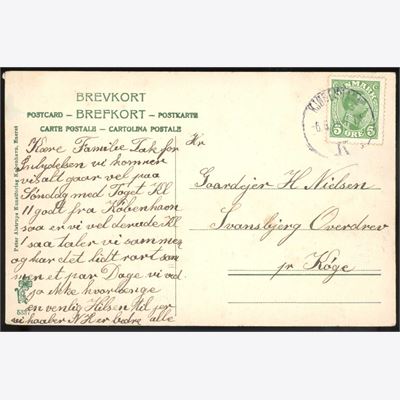 BREVKORT
POSTCARD — BREFKORT — POSTKARTE
CARTE POSTALE — CARTOLINA POSTALE
Peter Alstrups Kunstforlag Kjøbenhavn, Eneret
Kære Familie Tak for
Inbydelsen vi kommer
vis alt gaar vel paa
Söndag med Toget Kl
11 godt fra København
saa er vi vel derude Kl
saa taler vi sammen
og har det lidt rart sam
men et par Dage vi ved
jo ikke hvorlænge
en venlig Hilsen til jer
vi haaber N H er bedre alle
Hr
Gaardejer H Nielsen
Svansbjerg Overdrev
pr Köge
DANMARK
5 ØRE 5
K